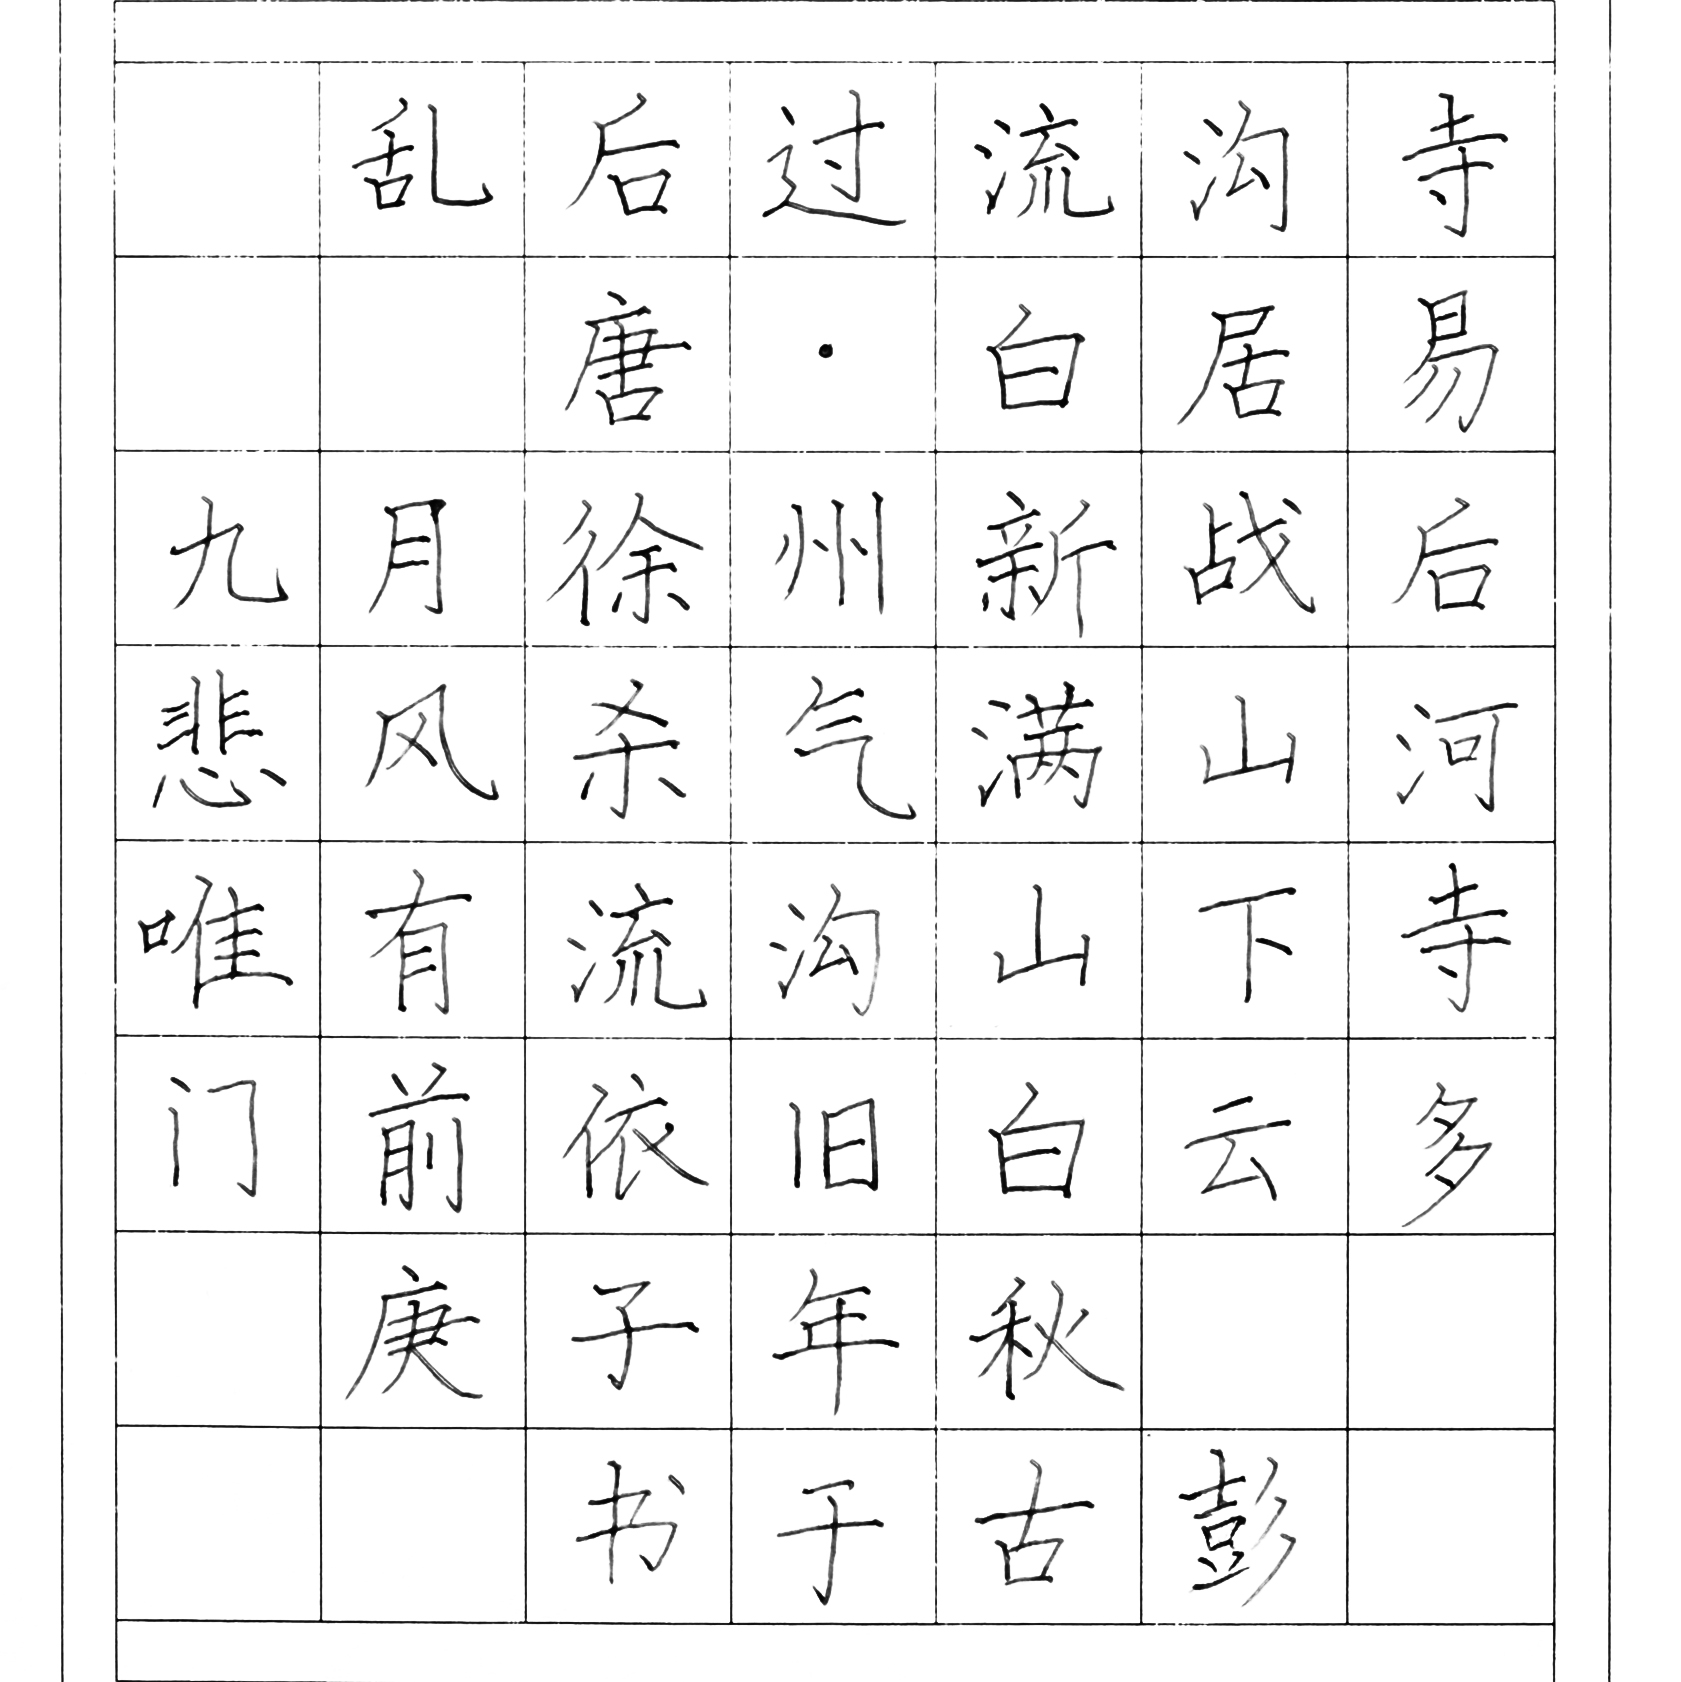 乱后过流沟寺
唐·白居易
九月徐州新战后
悲风杀气满山河
唯有流沟山下寺
门前依旧白云多
庚子年秋
书于古彭